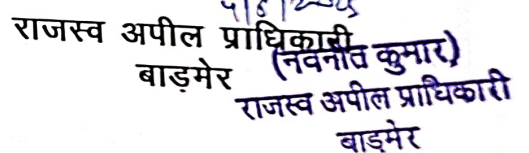 राजस्व अपील प्राधिकारी
बाड़मेर
(नवनीत कुमार)
राजस्व अपील प्राधिकारी
बाड़मेर